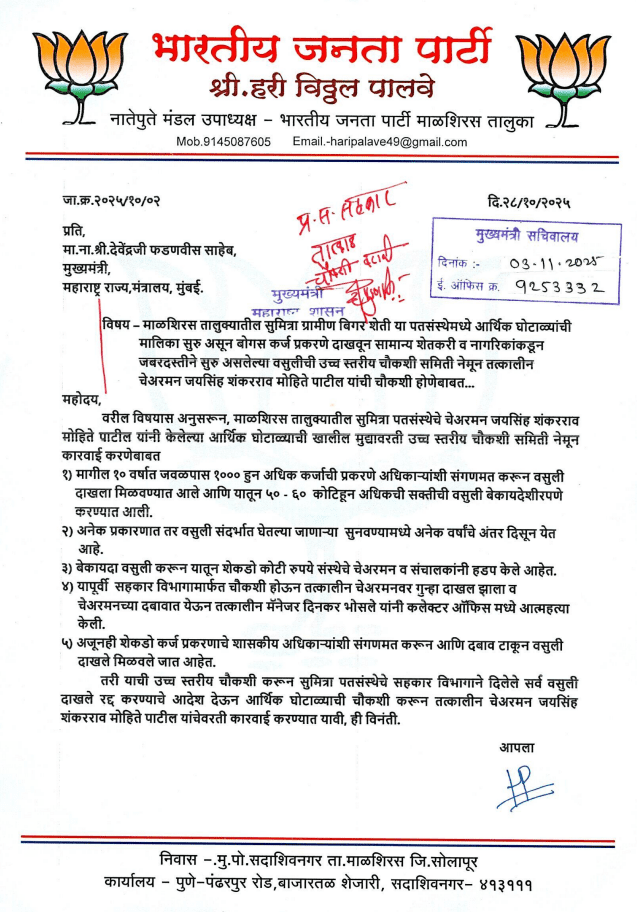 भारतीय जनता पार्टी
श्री.हरी विठ्ठल पालवे
नातेपुते मंडल उपाध्यक्ष – भारतीय जनता पार्टी माळशिरस तालुका
Mob.9145087605 Email.-haripalave49@gmail.com
जा.क्र.२०२५/१०/०२ दि.२८/१०/२०२५
प्रति,
मा.ना.श्री.देवेंद्रजी फडणवीस साहेब,
मुख्यमंत्री,
महाराष्ट्र राज्य,मंत्रालय, मुंबई.
प्र.स. सहकार
तात्काळ
चौकशी करावी
मुख्यमंत्री
महाराष्ट्र शासन
मुख्यमंत्री सचिवालय
दिनांक :- 03.11.2025
ई. ऑफिस क्र. 9253332
विषय – माळशिरस तालुक्यातील सुमित्रा ग्रामीण बिगर शेती या पतसंस्थेमध्ये आर्थिक घोटाळ्यांची
मालिका सुरु असून बोगस कर्ज प्रकरणे दाखवून सामान्य शेतकरी व नागरिकांकडून
जबरदस्तीने सुरु असलेल्या वसुलीची उच्च स्तरीय चौकशी समिती नेमून तत्कालीन
चेअरमन जयसिंह शंकरराव मोहिते पाटील यांची चौकशी होणेबाबत...
महोदय,
वरील विषयास अनुसरून, माळशिरस तालुक्यातील सुमित्रा पतसंस्थेचे चेअरमन जयसिंह शंकरराव
मोहिते पाटील यांनी केलेल्या आर्थिक घोटाळ्याची खालील मुद्यावरती उच्च स्तरीय चौकशी समिती नेमून
कारवाई करणेबाबत
१) मागील १० वर्षात जवळपास १००० हुन अधिक कर्जाची प्रकरणे अधिकाऱ्यांशी संगणमत करून वसुली
दाखला मिळवण्यात आले आणि यातून ५० - ६० कोटिहून अधिकची सक्तीची वसुली बेकायदेशीरपणे
करण्यात आली.
२) अनेक प्रकारणात तर वसुली संदर्भात घेतल्या जाणाऱ्या सुनवण्यामध्ये अनेक वर्षांचे अंतर दिसून येत
आहे.
३) बेकायदा वसुली करून यातून शेकडो कोटी रुपये संस्थेचे चेअरमन व संचालकांनी हडप केले आहेत.
४) यापूर्वी सहकार विभागामार्फत चौकशी होऊन तत्कालीन चेअरमनवर गुन्हा दाखल झाला व
चेअरमनच्या दबावात येऊन तत्कालीन मॅनेजर दिनकर भोसले यांनी कलेक्टर ऑफिस मध्ये आत्महत्या
केली.
५) अजूनही शेकडो कर्ज प्रकरणाचे शासकीय अधिकाऱ्यांशी संगणमत करून आणि दबाव टाकून वसुली
दाखले मिळवले जात आहेत.
तरी याची उच्च स्तरीय चौकशी करून सुमित्रा पतसंस्थेचे सहकार विभागाने दिलेले सर्व वसुली
दाखले रद्द करण्याचे आदेश देऊन आर्थिक घोटाळ्याची चौकशी करून तत्कालीन चेअरमन जयसिंह
शंकरराव मोहिते पाटील यांचेवरती कारवाई करण्यात यावी, ही विनंती.
आपला
निवास –.मु.पो.सदाशिवनगर ता.माळशिरस जि.सोलापूर
कार्यालय – पुणे-पंढरपुर रोड,बाजारतळ शेजारी, सदाशिवनगर- ४१३१११